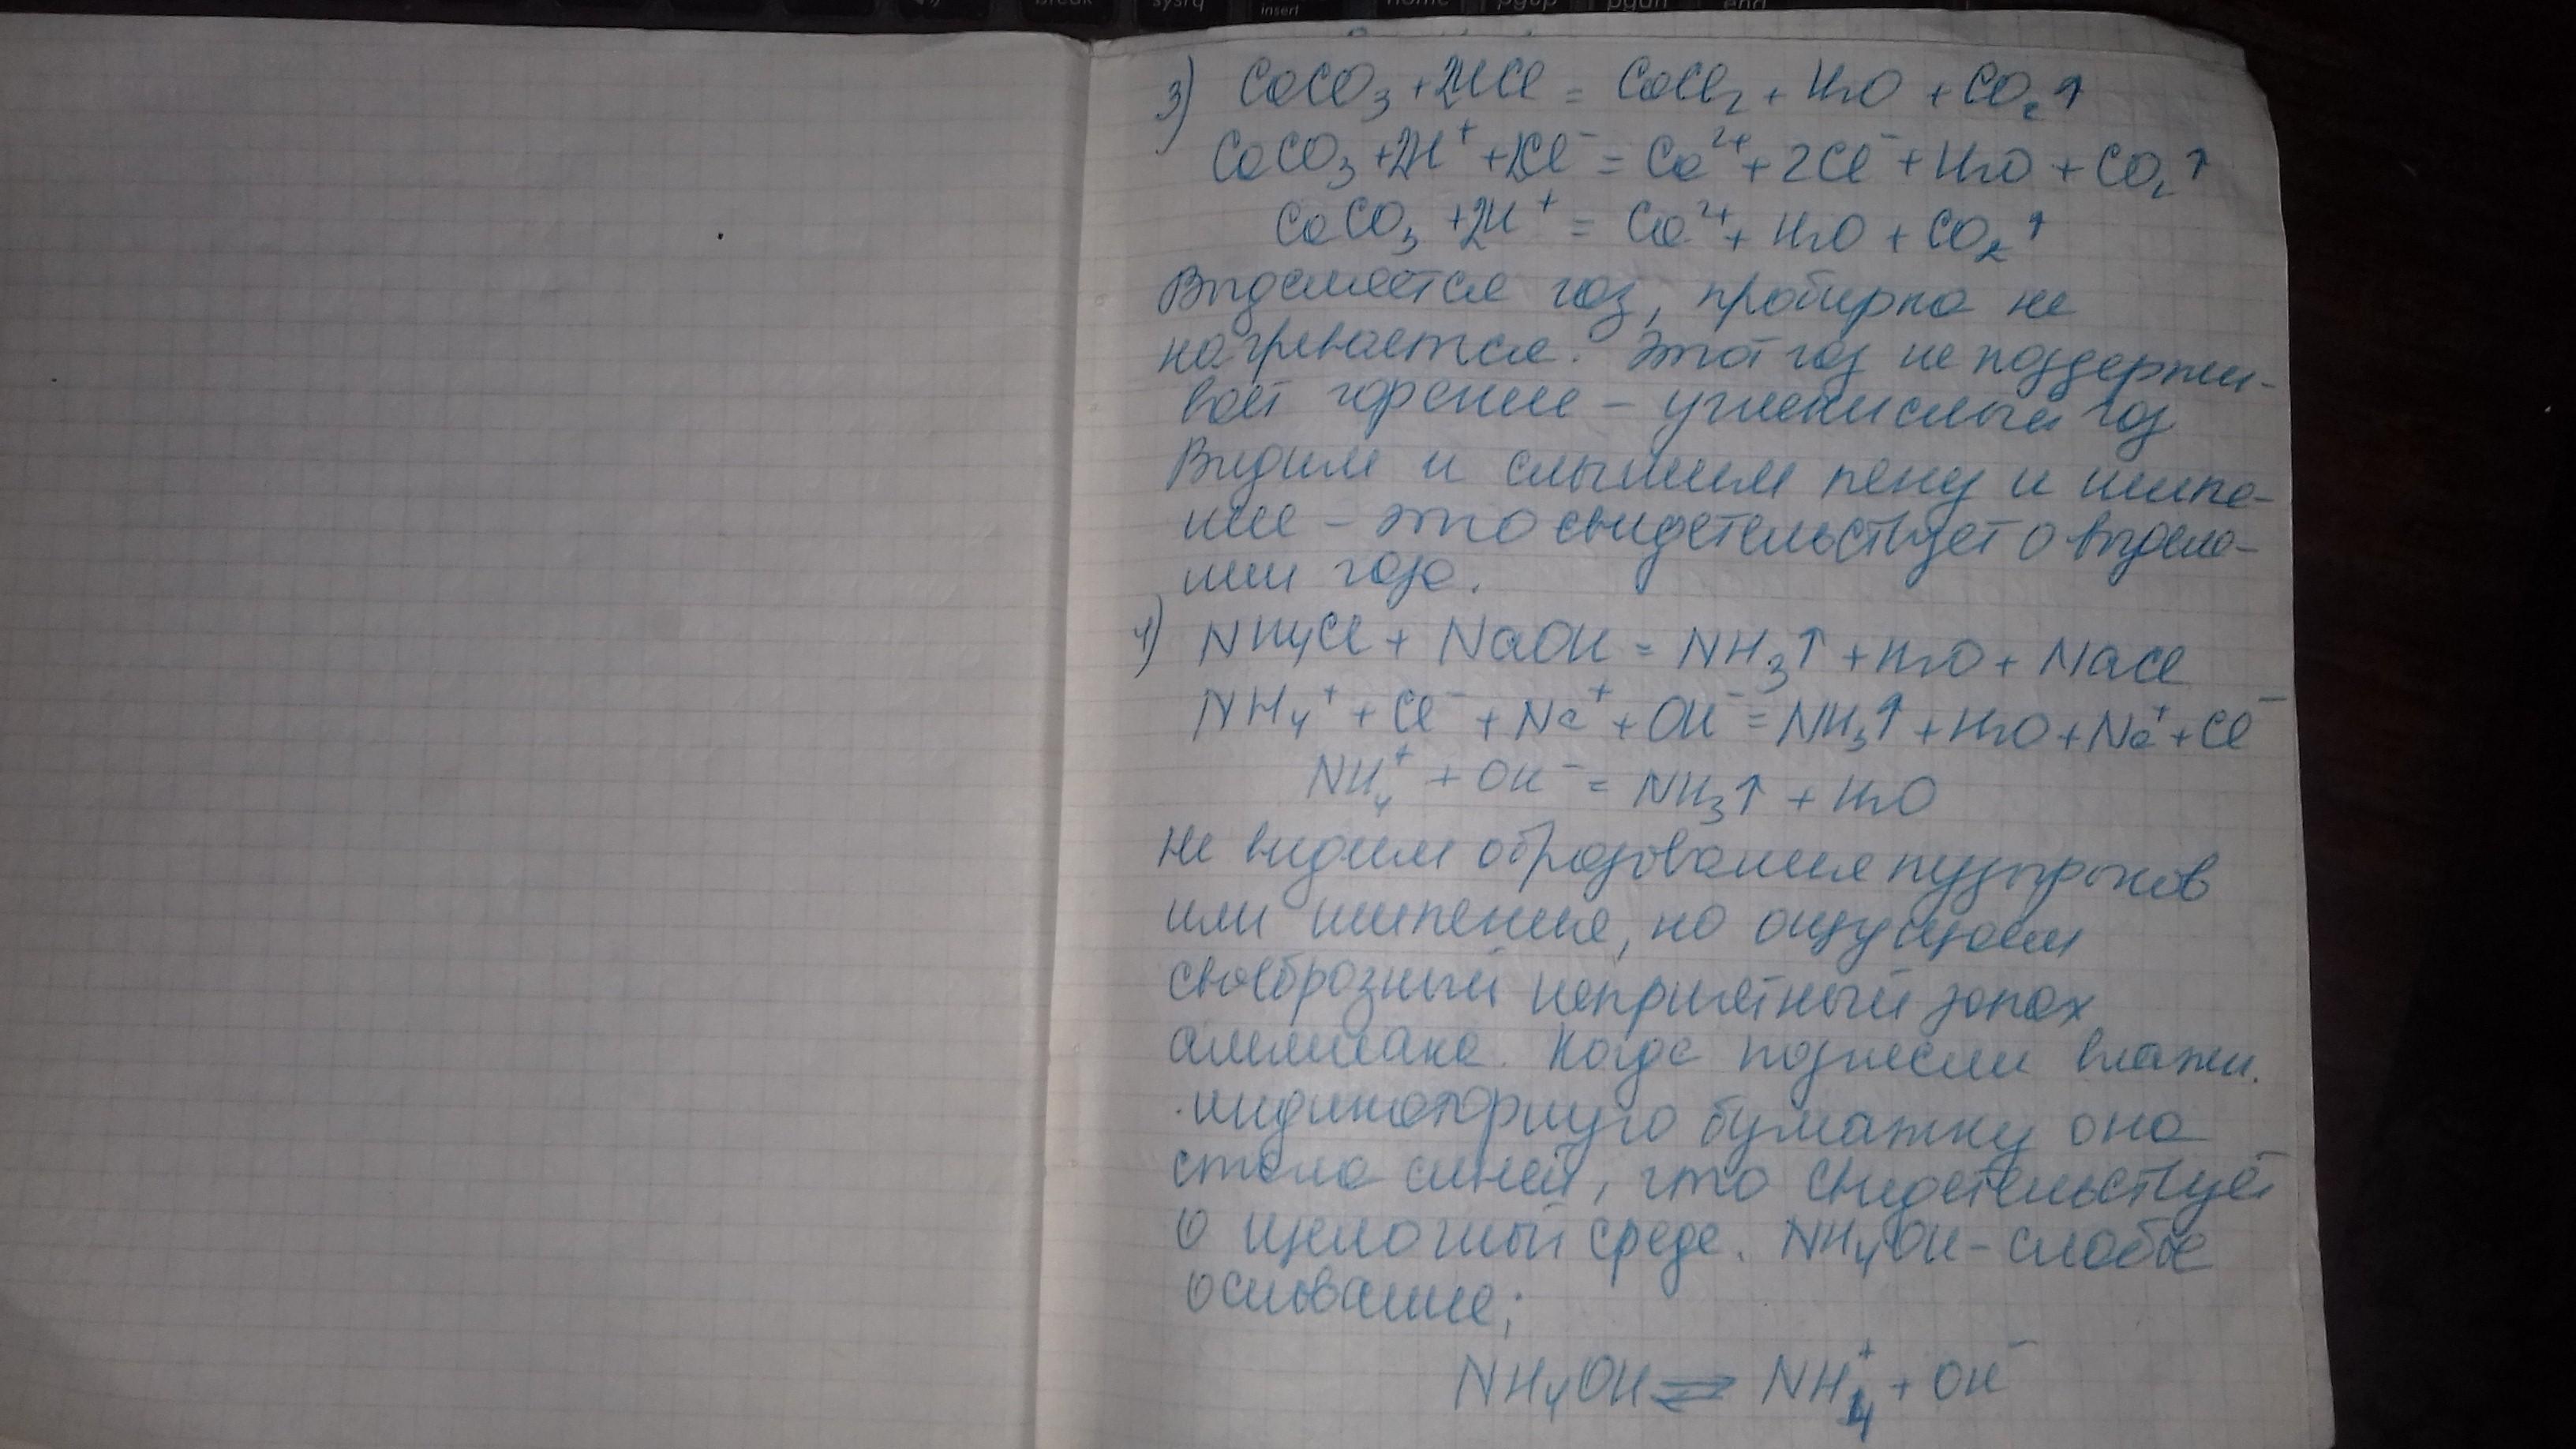 break
sysrq
insert
home
pgup
pgdn
end
3) CaCO₃ + 2HCl = CaCl₂ + H₂O + CO₂↑
CaCO₃ + 2H⁺ + 2Cl⁻ = Ca²⁺ + 2Cl⁻ + H₂O + CO₂↑
CaCO₃ + 2H⁺ = Ca²⁺ + H₂O + CO₂↑
Выделяется газ, пробирка не
нагревается. Этот газ не поддержи-
вает горение – углекислый газ
Видим и слышим пену и шипе-
ние – это свидетельствует о выделе-
нии газа.
4) NH₄Cl + NaOH = NH₃↑ + H₂O + NaCl
NH₄⁺ + Cl⁻ + Na⁺ + OH⁻ = NH₃↑ + H₂O + Na⁺ + Cl⁻
NH₄⁺ + OH⁻ = NH₃↑ + H₂O
Не видим образования пузырьков
или шипения, но ощущаем
своебразный неприятный запах
аммиака. Когда поднесли влажн.
индикаторную бумажку она
стала синей, что свидетельствует
о щелочный среде. NH₄OH – слабое
основание;
NH₄OH ⇌ NH₄⁺ + OH⁻